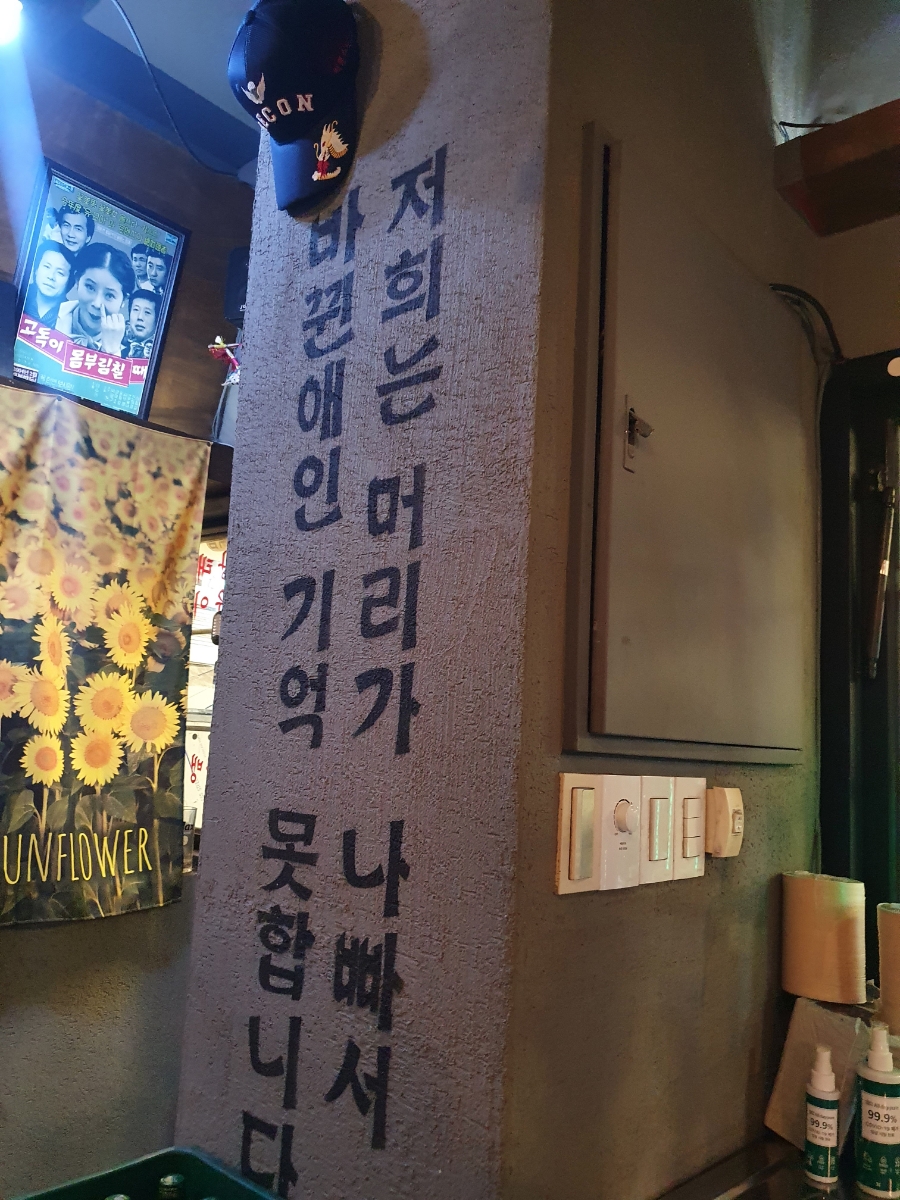 저희는 머리가 나빠서
바뀐애인 기억 못합니다
고독이 몸부림칠 때
UNFLOWER
CON
99.9%
99.9%